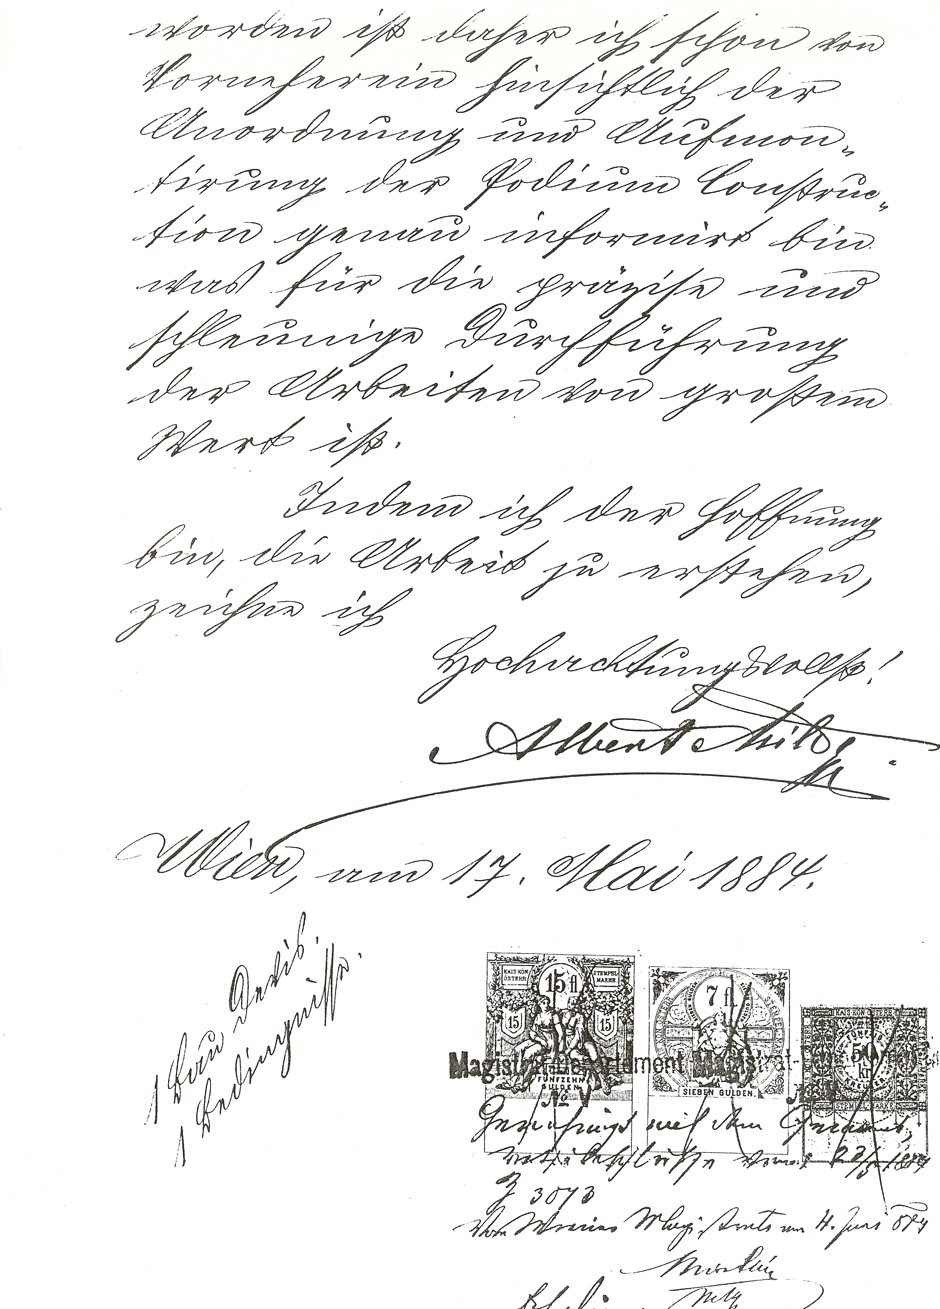 worden ist daher ich schon von
Vorneherein hinsichtlich der
Anordnung und Aufmon„
tirung der Podium Construc„
tion genau informirt bin
was für die präzise und
schleunige Durchführung
der Arbeiten von großem
Wert ist.
Indem ich der Hoffnung
bin, die Arbeit zu erstehen,
zeichne ich
Hochachtungsvollst!
Albert Milde
Wien, am 17. Mai 1884.
1 Bau Devis.
1 Bedingnisse.
KAIS. KÖN. ÖSTERR.
STEMPEL MARKE
15 fl
15
15
FÜNFZEHN GULDEN
7 fl
SIEBEN GULDEN.
KAIS. KÖN. ÖSTERR.
50 kr
STEMPEL MARKE
Magistrat-Departement Magistrat-
No V
Genehmigt mit dem Gemeinde„
rathsbeschlusse vom
Z 3073
Vom Wiener Magistrate am 4. Juni 884